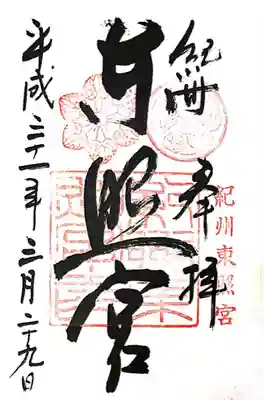 紀州
奉拝
紀州東照宮
東照宮
平成三十一年三月二十九日